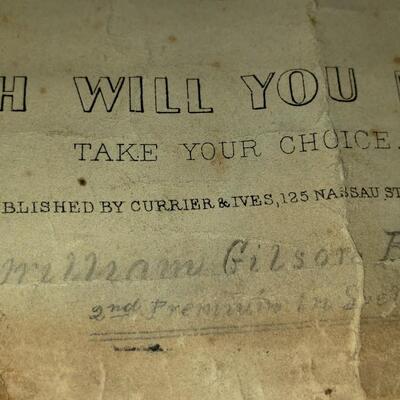 H WILL YOU
TAKE YOUR CHOICE.
BLISHED BY CURRIER & IVES, 125 NASSAU ST
William Gilson
2nd Premium in